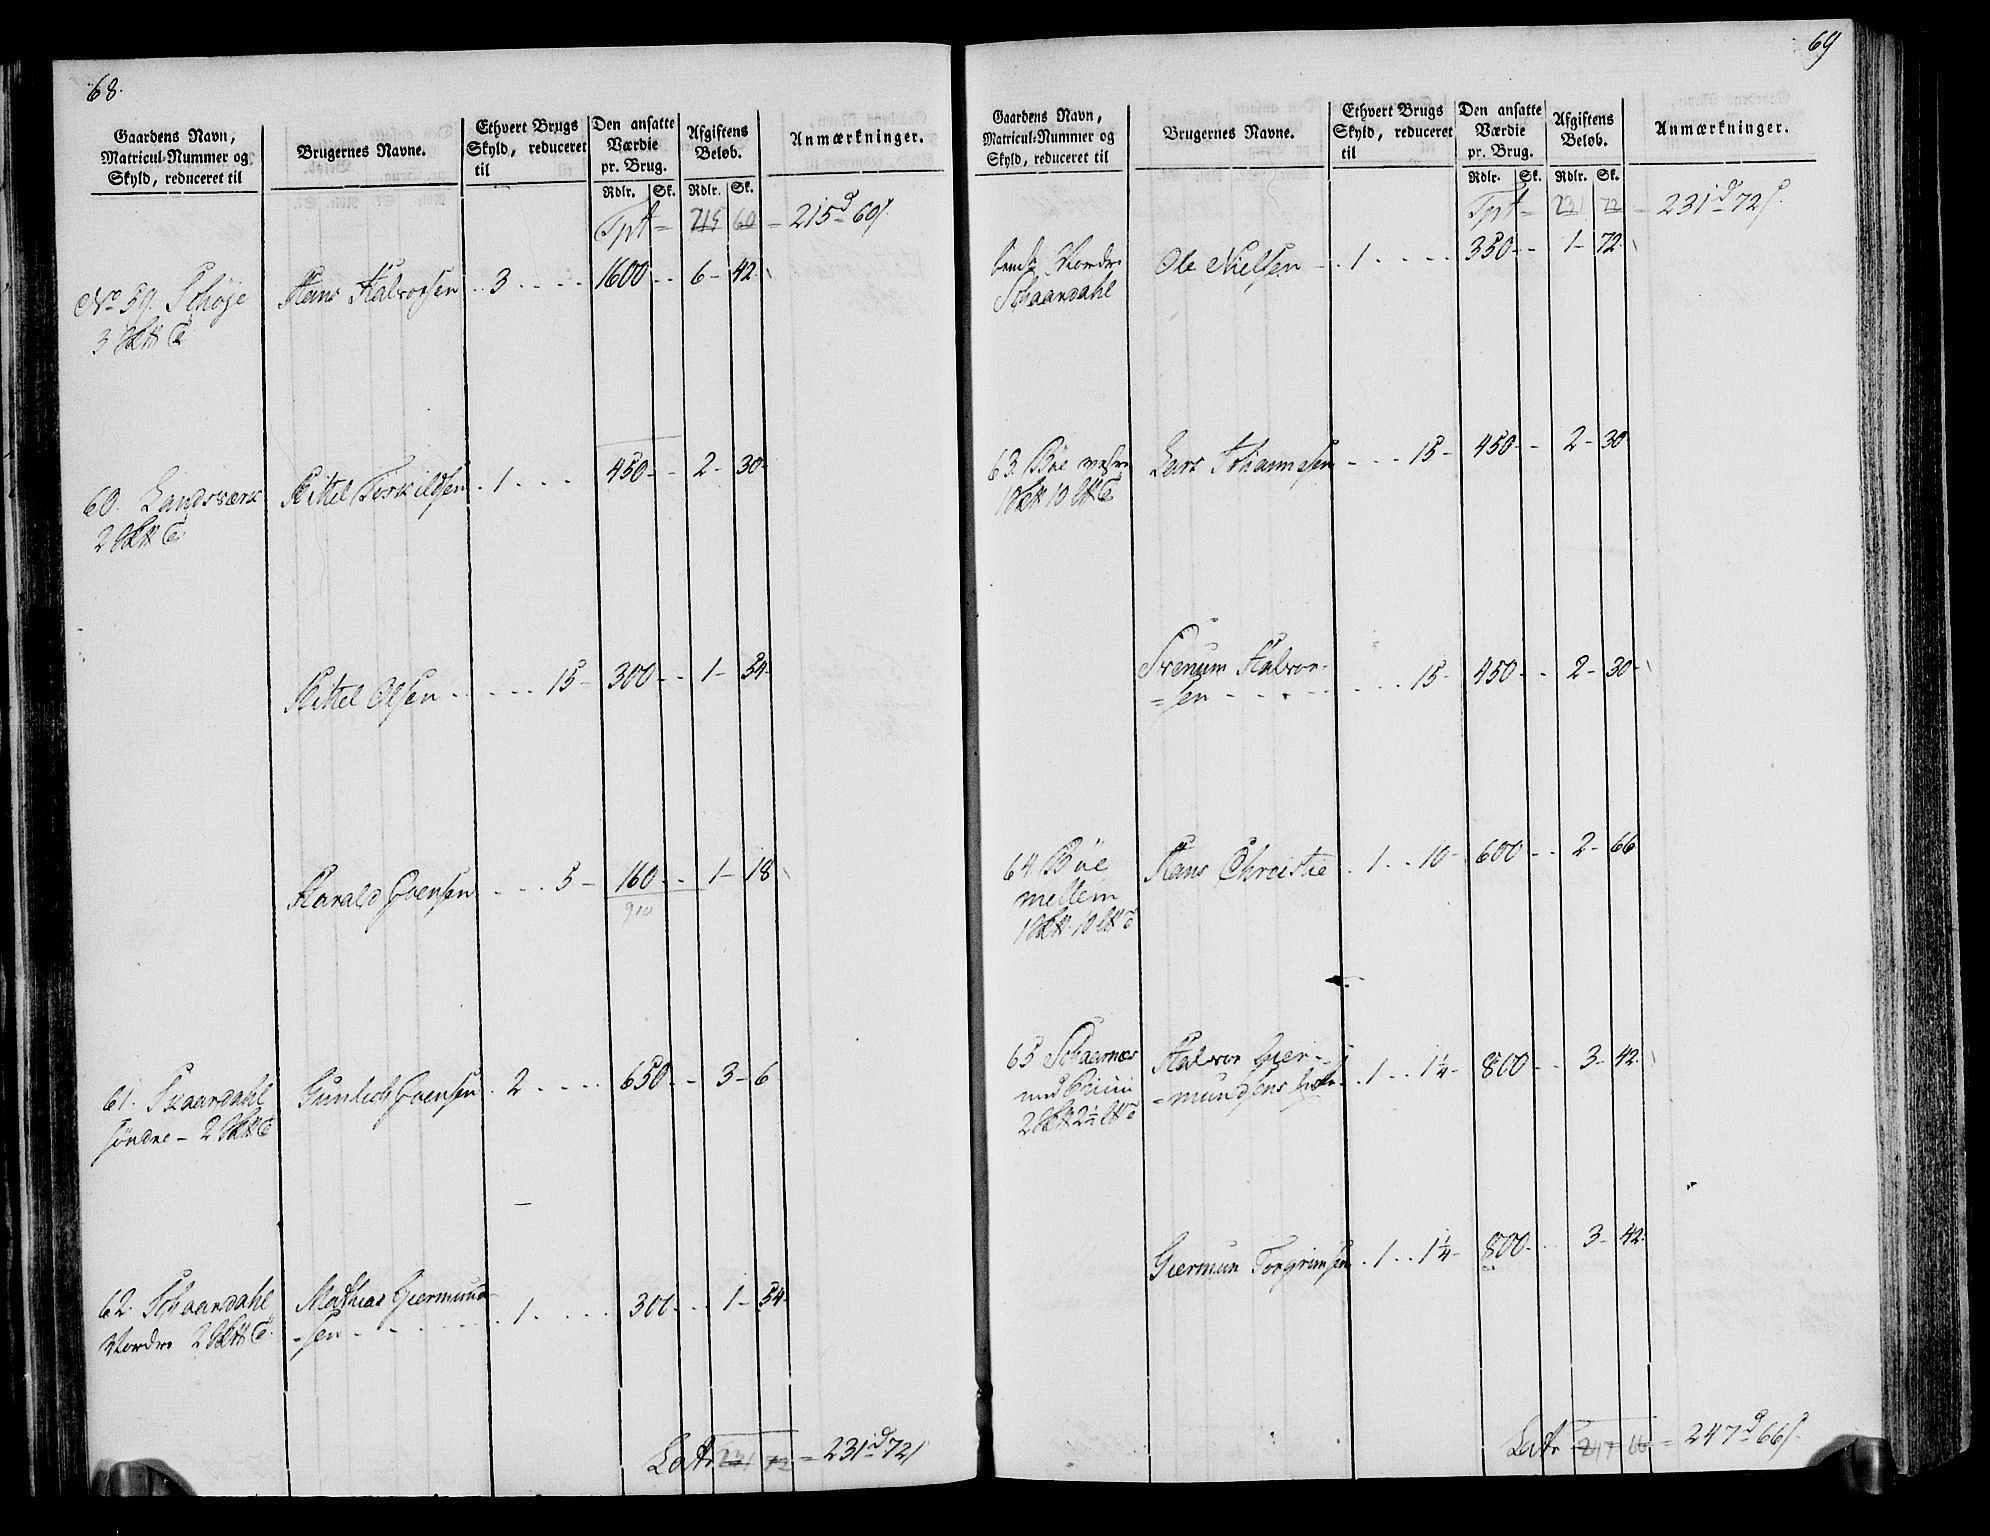 68.
Gaardens Navn,
Matricul-Nummer og
Skyld, reduceret til
Brugernes Navne.
Ethvert Brugs
Skyld, reduceret
til
Den ansatte
Værdie
pr. Brug.
Rdlr. Sk.
Afgiftens
Beløb.
Rdlr. Sk.
Anmærkninger.
Tpt = 215 60 = 215 d 60 s.
No 59. Schøje Hans Halvorsen 3 1600 6 - 42
60. Landsværk Kittel Torkildsen 1 450 2 - 30
Kittel Olsen 15 300 1 - 54
Harald Joensen 5 160 1 - 18
910
61. Skaardahl Gunlech Joensen 2 650 3 - 6
søndre - 2
62. Schaardahl Mathias Giermund-
Nordre 2 -sen 1 300 1 - 54
Latr 231 72 = 231 d 72 s
69
Gaardens Navn,
Matricul-Nummer og
Skyld, reduceret til
Brugernes Navne.
Ethvert Brugs
Skyld, reduceret
til
Den ansatte
Værdie
pr. Brug.
Rdlr. Sk.
Afgiftens
Beløb.
Rdlr. Sk.
Anmærkninger.
Tpt = 231 72 = 231 d 72 s.
Nordre Ole Nielsen 1 350 1 - 72
Schaardahl
63. Bøe vestre Lars Johannesen 15 450 2 - 30
Svenum Halvor-
-sen 15 450 2 - 30
64. Bøe Hans Christie 1 10 600 2 - 66
mellem
65 Halvor Gier-
med -mundsens 1 1¼ 800 3 - 42
Giermun Torgrimsen 1 1¼ 800 3 - 42
Latr 247 66 = 247 d 66 s.